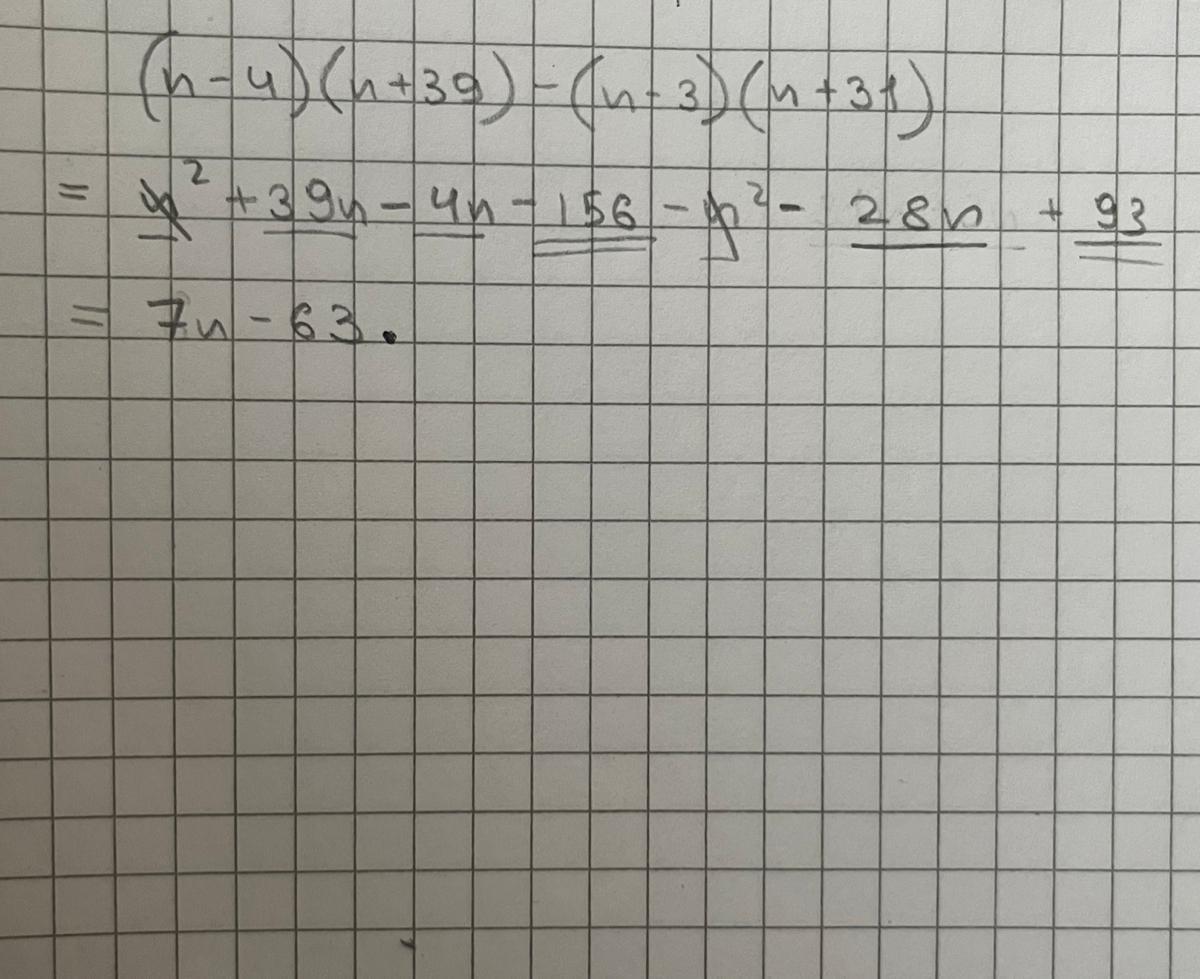 (n-4)(n+39)-(n-3)(n+31)
= n² + 39n - 4n - 156 - n² - 28n + 93
= 7n - 63.